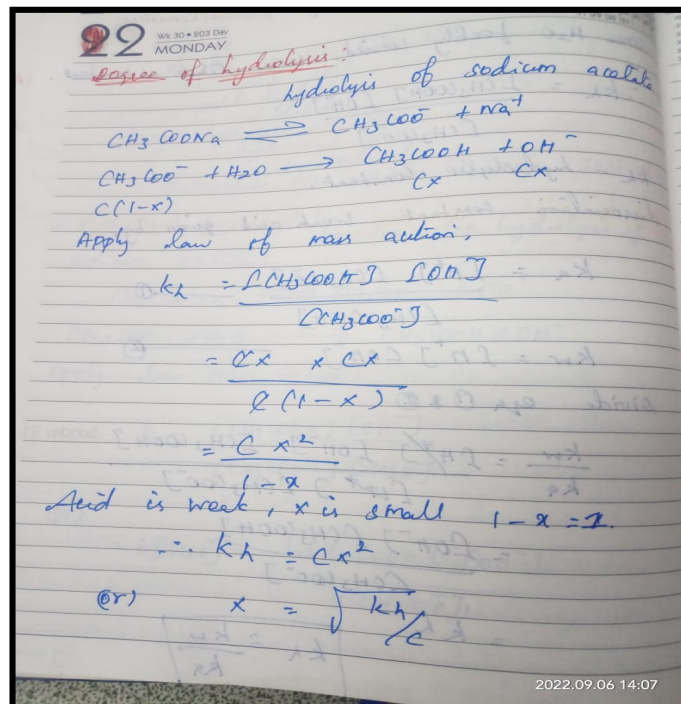 22 Wk 30 • 203 Day
MONDAY
Degree of hydrolysis:
hydrolysis of sodium acetate
CH3COONa ⇌ CH3COO⁻ + Na⁺
CH3COO⁻ + H2O → CH3COOH + OH⁻
C(1-x) Cx Cx
Apply law of mass action,
kh = [CH3COOH] [OH⁻] / [CH3COO⁻]
= Cx × Cx / C(1-x)
= C x² / 1-x
Acid is weak, x is small 1-x = 1.
∴ kh = Cx²
(or) x = √kh/c
2022.09.06 14:07